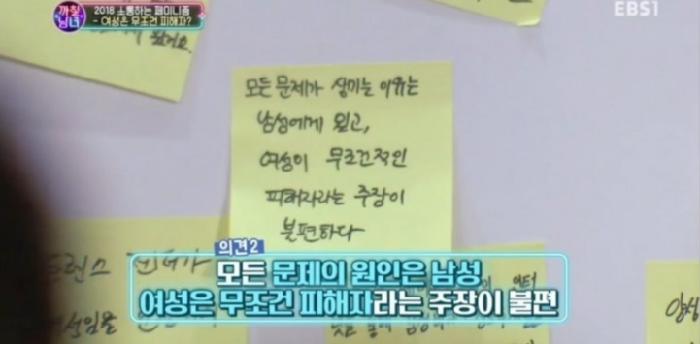 까칠남녀
2018 소통하는 페미니즘
- 여성은 무조건 피해자?
EBS1
모든 문제가 생기는 이유는
남성에게 있고,
여성이 무조건적인
피해자라는 주장이
불편하다
트랜스 젠더가
의견2
모든 문제의 원인은 남성
여성은 무조건 피해자라는 주장이 불편